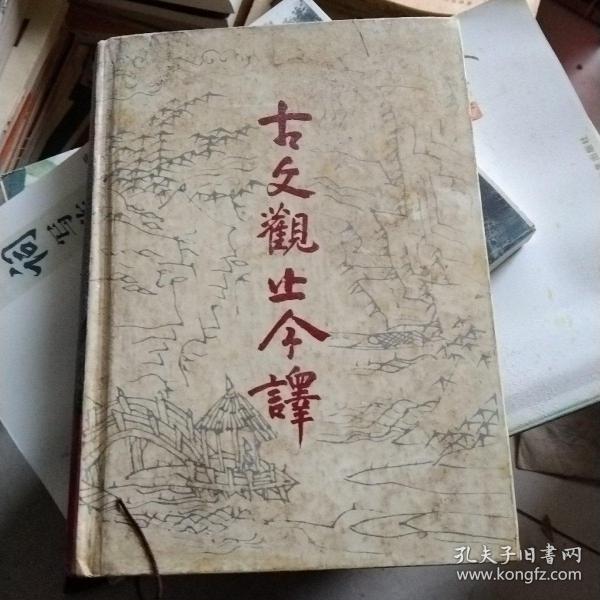 古文觀止今譯
孔夫子旧書网
www.kongfz.com